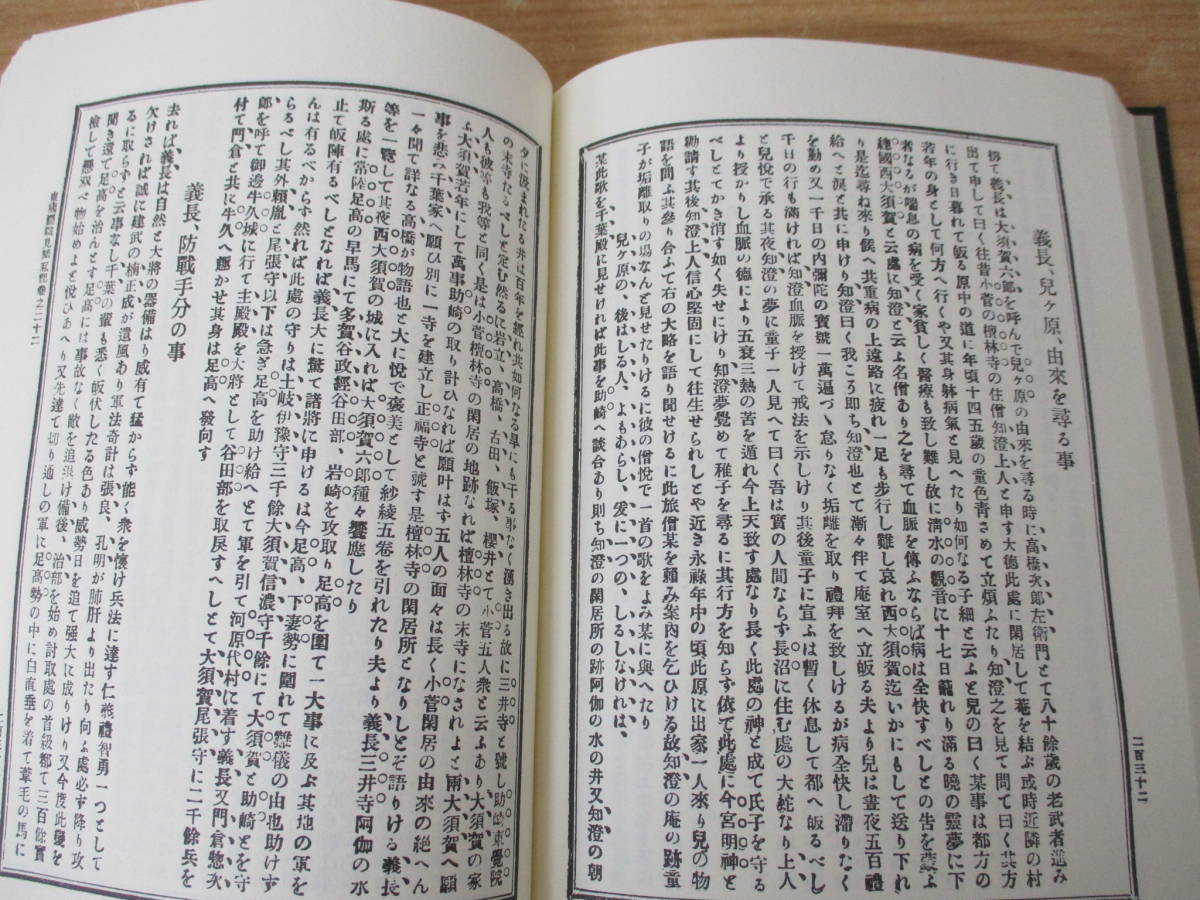 義長、兒ヶ原、由來を尋る事
扨て義長は大須賀六郎を呼んで兒ヶ原の由來を尋る時に高橋次郎左衛門とて八十餘歳の老武者進み
出て申して曰く往昔小菅の檀林寺の住僧知澄上人と申す大德此處に閑居して菴を結ぶ或時近隣の村
に行き日暮れて皈る原中の道に年頃十四五歳の童色靑さめて立煩ふたり知澄之を見て問て曰く其方
若年の身として何方へ行くや又其身躰病氣と見へたり如何なる子細と云ふと兒の曰く某事は都方の
者なるが喘息の病を受く家貧しく醫療も致し難し故に淸水の觀音に十七日籠れり滿る曉の靈夢に下
總國西大須賀と云處に知澄と云ふ名僧あり之を尋て血脈を傳ふならば病は全快すべしとの告を蒙ふ
り是迄尋ね來り候へ共重病の上遠路に疲れ一足も步行し難し哀れ西大須賀迄いかにもして送り下れ
給へと淚と共に申けり知澄曰く我ころ即ち知澄也とて漸々伴て庵室へ立皈る夫より兒は晝夜五百禮
を勤め又一千日の内彌陀の寶號一萬遍づゝ怠りなく垢離を取り禮拜を致しけるが病全快し滯りなく
千日の行も滿ければ知澄血脈を授けて戒法を示しけり其後童子に宣ふは暫く休息して都へ皈るべし
と兒悅で承る其夜知澄の夢に童子一人見へて曰く吾は實の人間ならず長沼に住む處の大蛇なり上人
より授かりし血脈の德により五衰三熱の苦を遁れ今上天致す處なり長く此處の神と成て氏子を守る
べしとてかき消す如く失せにけり知澄夢覺めて稚子を尋るに其行方を知らず依て此處に今宮明神と
勸請す其後知澄上人信心堅固にして往生せられしとや近き永祿年中の頃此原に出家一人來り兒の物
語を問ふ其參り合ふて右の大略を語り聞せけるに此旅僧某を賴み案内を乞ひける故知澄の庵の跡童
子が垢離取りの場なんと見せたりけるに彼の僧悅で一首の歌をよみ某に與へたり
兒ヶ原の、後はしる人、よもあらし、爰に一つの、しるしなければ、
某此歌を千葉殿に見せければ此事を助崎へ談合あり則ち知澄の閑居所の跡阿伽の水の井又知澄の朝
二百三十二
夕に汲まれたる井は百年を經れ共如何なる旱にも干る事なく漲き出る故に三井寺と號し助崎東覺院
の末寺たるべしと定む然るに岩立、高橋、古田、飯塚、櫻井とて小菅五人衆と云ふあり大須賀の家
人も彼等も我等と同く是は小菅檀林寺の閑居の地跡なれば檀林寺の末寺になされよと兩大須賀へ願
ふ大須賀若年にして萬事助崎の取り計ひなれば願叶はす五人の面々は長く小菅閑居の由來の絶へん
事を悲み千葉家へ願ひ別に一寺を建立し正福寺と號す是檀林寺の閑居所となりしとぞ語りける義長
一々聞て詳なる高橋が物語也と大に悅で褒美として紗綾五卷を引れたり夫より義長三井寺阿伽の水
等を一覽して其夜西大須賀の城に入れば大須賀六郎種々饗應したり
斯る處に常陸足高の早馬にて多賀谷政經谷田部、岩崎を攻取り足高を圍て一大事に及ぶ其地の軍を
止て皈陣有るべしとなれば義長大に驚て諸將に申けるは今足高、下妻勢に圍れて難儀の由也助けず
んは有るべからず然れば此處の守りは土岐伊豫守三千餘大須賀信濃守千餘にて大須賀と助崎とを守
らるべし其外賴胤と尾張守以下は急ぎ足高を助け給へとて軍を引て河原代村に着す義長又門倉惣次
郎を呼て御邊牛久城に行て主殿殿を大將として谷田部を取戾すへしとて大須賀尾張守に二千餘兵を
付て門倉と共に牛久へ趣かせ其身は足高へ發向す
義長、防戰手分の事
去れば義長は自然と大將の器備はり威有て猛からず能く衆を懷け兵法に達す仁義禮智勇一つとして
欠けざれば誠に建武の楠正成が遺風あり軍法奇計は張良、孔明が肺肝より出たり向ふ處必ず降り攻
るに取らずと云事なし千葉の輩も悉く皈伏したる色あり威勢日を追て强大に成りけり又今度此變を
聞き還て足高を治んとす足高には事故なく敵を追退け備後、治部を始め討取處の首級都て三百餘實
檢して懸双べ物始めよと悅びあへり又先達て切り通しの軍に足高勢の中に白直垂を着て葦毛の馬に
東國鬪戰見聞私記卷之二十二